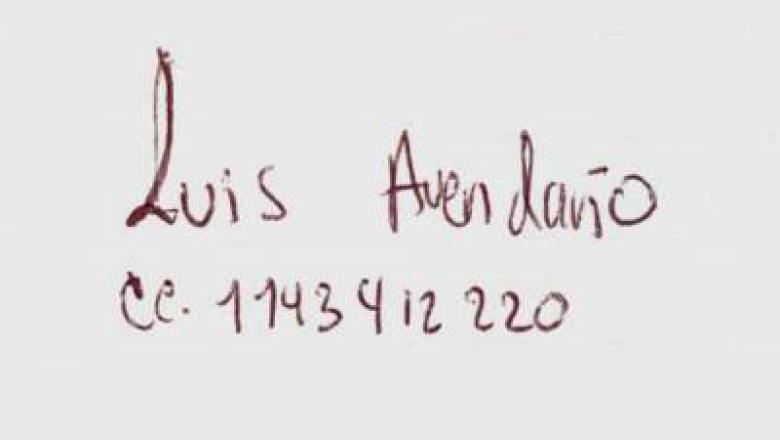 Luis Avendaño
cc. 1143412220